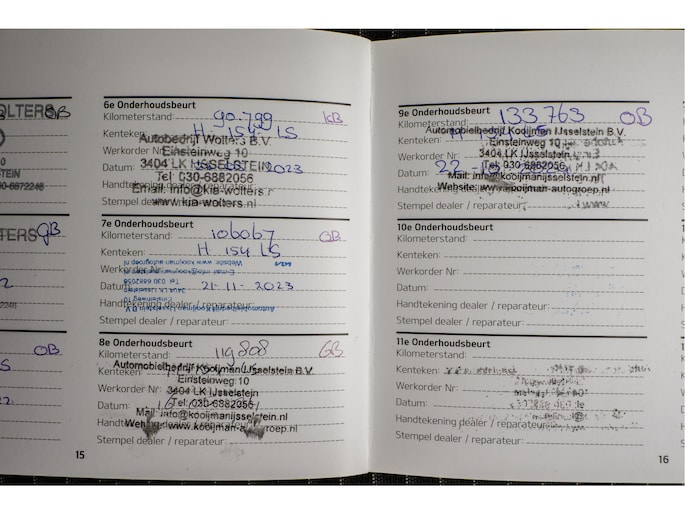 OLTERS
OB
STEIN
30-6872248
TERS
GB
OB
6e Onderhoudsbeurt
Kilometerstand: 90.799 KB
Kenteken: H 154 LS
Autobedrijf Wolters B.V.
Werkorder Nr:
Einsteinweg 10
3404 LK IJSSELSTEIN
Datum: 2023
Tel: 030-6882056
Handtekening dealer / reparateur:
Email: info@kia-wolters.nl
Stempel dealer / reparateur:
www.kia-wolters.nl
7e Onderhoudsbeurt
Kilometerstand: 106067 OB
Kenteken: H 154 LS
Werkorder Nr:
Datum: 21-11-2023
Handtekening dealer / reparateur:
Stempel dealer / reparateur:
8e Onderhoudsbeurt
Kilometerstand: 119808 GB
Automobielbedrijf Kooijman IJsselstein B.V.
Kenteken:
Einsteinweg 10
Werkorder Nr:
3404 LK IJsselstein
Datum:
Tel: 030-6882056
Mail: info@kooijmanijsselstein.nl
Handtekening dealer / reparateur:
Website: www.kooijman-autogroep.nl
Stempel dealer / reparateur:
15
9e Onderhoudsbeurt
Kilometerstand: 133763 OB
Automobielbedrijf Kooijman IJsselstein B.V.
Kenteken: H 154 LS
Einsteinweg 10
Werkorder Nr:
3404 LK IJsselstein
Datum: 22
Tel: 030-6882056
Mail: info@kooijmanijsselstein.nl
Handtekening dealer / reparateur:
Website: www.kooijman-autogroep.nl
Stempel dealer / reparateur:
10e Onderhoudsbeurt
Kilometerstand:
Kenteken:
Werkorder Nr:
Datum:
Handtekening dealer / reparateur:
Stempel dealer / reparateur:
11e Onderhoudsbeurt
Kilometerstand:
Kenteken:
Werkorder Nr:
Datum:
Handtekening dealer / reparateur:
Stempel dealer / reparateur:
16